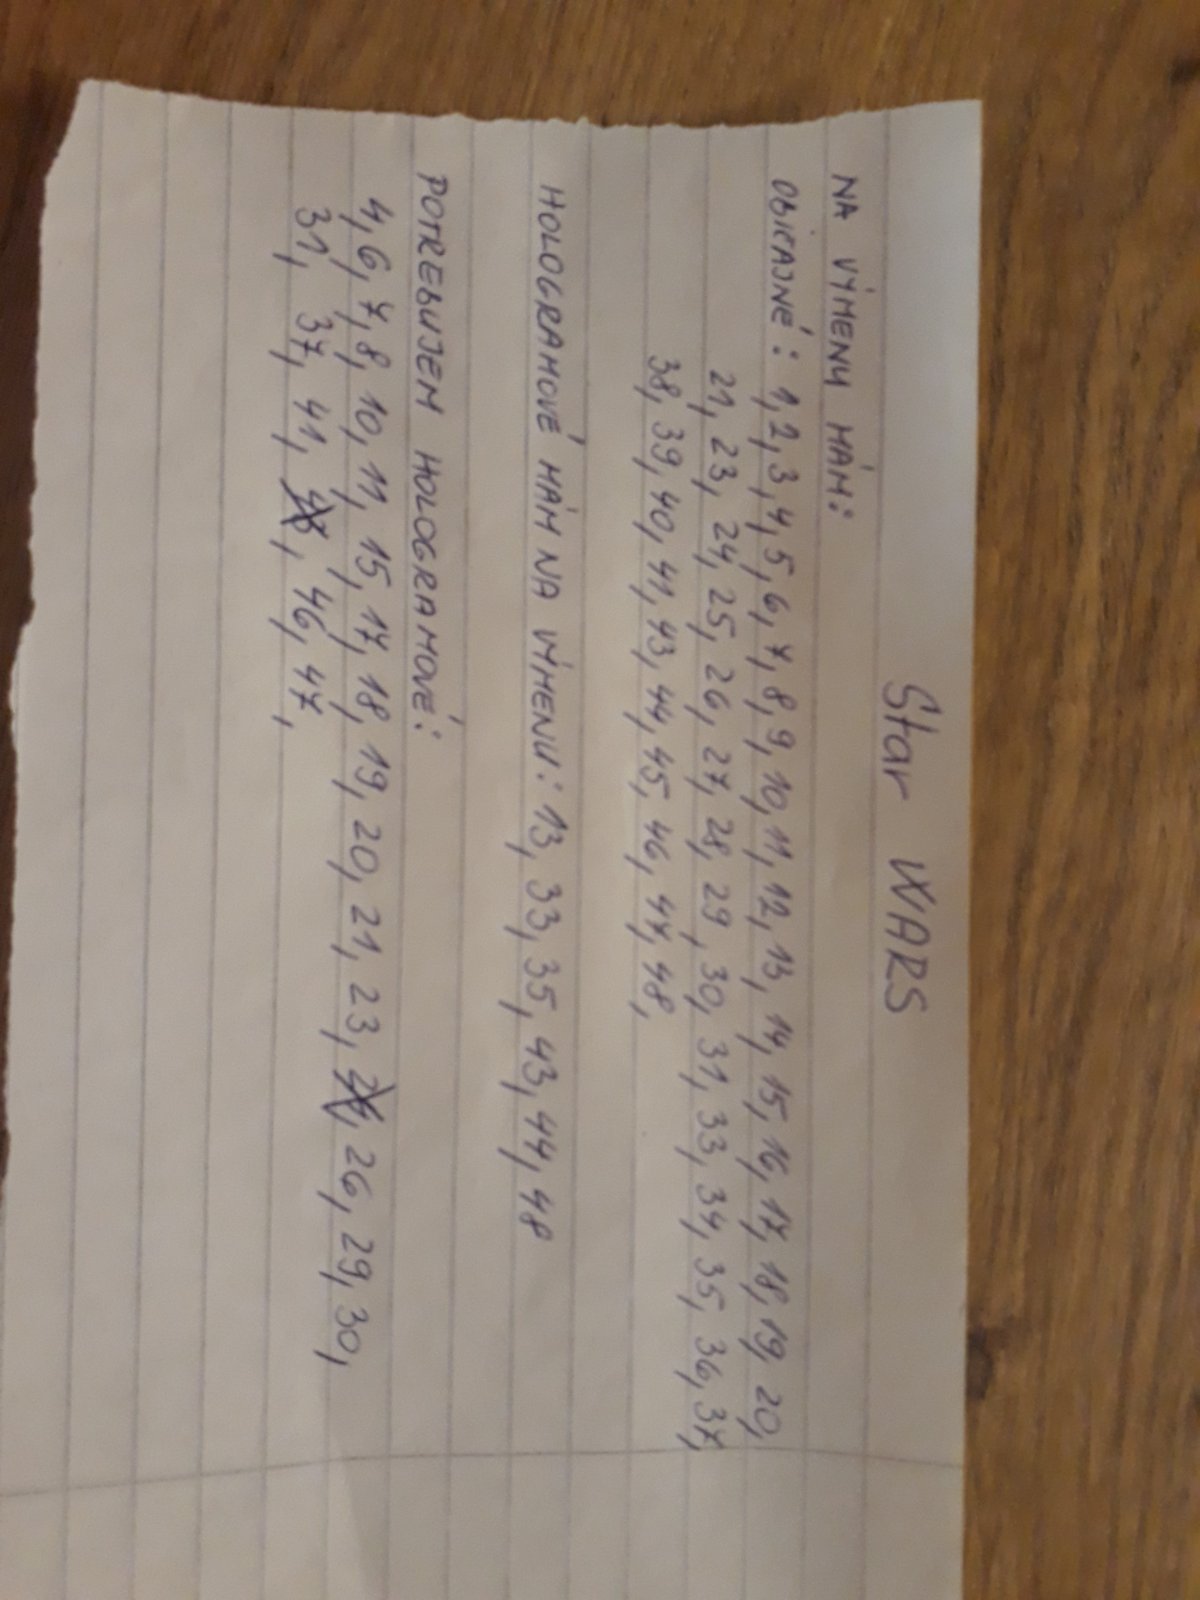 Star WARS
NA VÝMENU MÁM:
OBIČAJNÉ: 1, 2, 3, 4, 5, 6, 7, 8, 9, 10, 11, 12, 13, 14, 15, 16, 17, 18, 19, 20,
21, 23, 24, 25, 26, 27, 28, 29, 30, 31, 33, 34, 35, 36, 37,
38, 39, 40, 41, 43, 44, 45, 46, 47, 48,
HOLOGRAMOVÉ MÁM NA VÝMENU: 13, 33, 35, 43, 44, 48
POTREBUJEM HOLOGRAMOVÉ:
4, 6, 7, 8, 10, 11, 15, 17, 18, 19, 20, 21, 23, 26, 29, 30,
31, 37, 41, 46, 47,